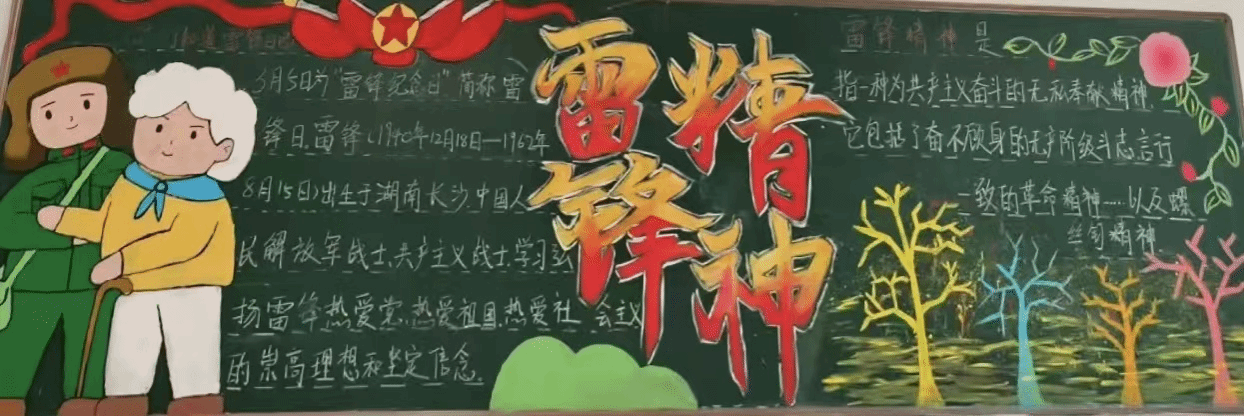 知道雷锋日吗
3月5日为"雷锋纪念日"简称雷
锋日.雷锋(1940年12月18日—1962年
8月15日)出生于湖南长沙.中国人
民解放军战士.共产主义战士.学习弘
扬雷锋热爱党.热爱祖国.热爱社会主义
的崇高理想和坚定信念.
雷锋
精神
雷锋精神是
指一种为共产主义奋斗的无私奉献精神.
它包括了奋不顾身的无产阶级斗志言行
一致的革命精神……以及螺
丝钉精神.